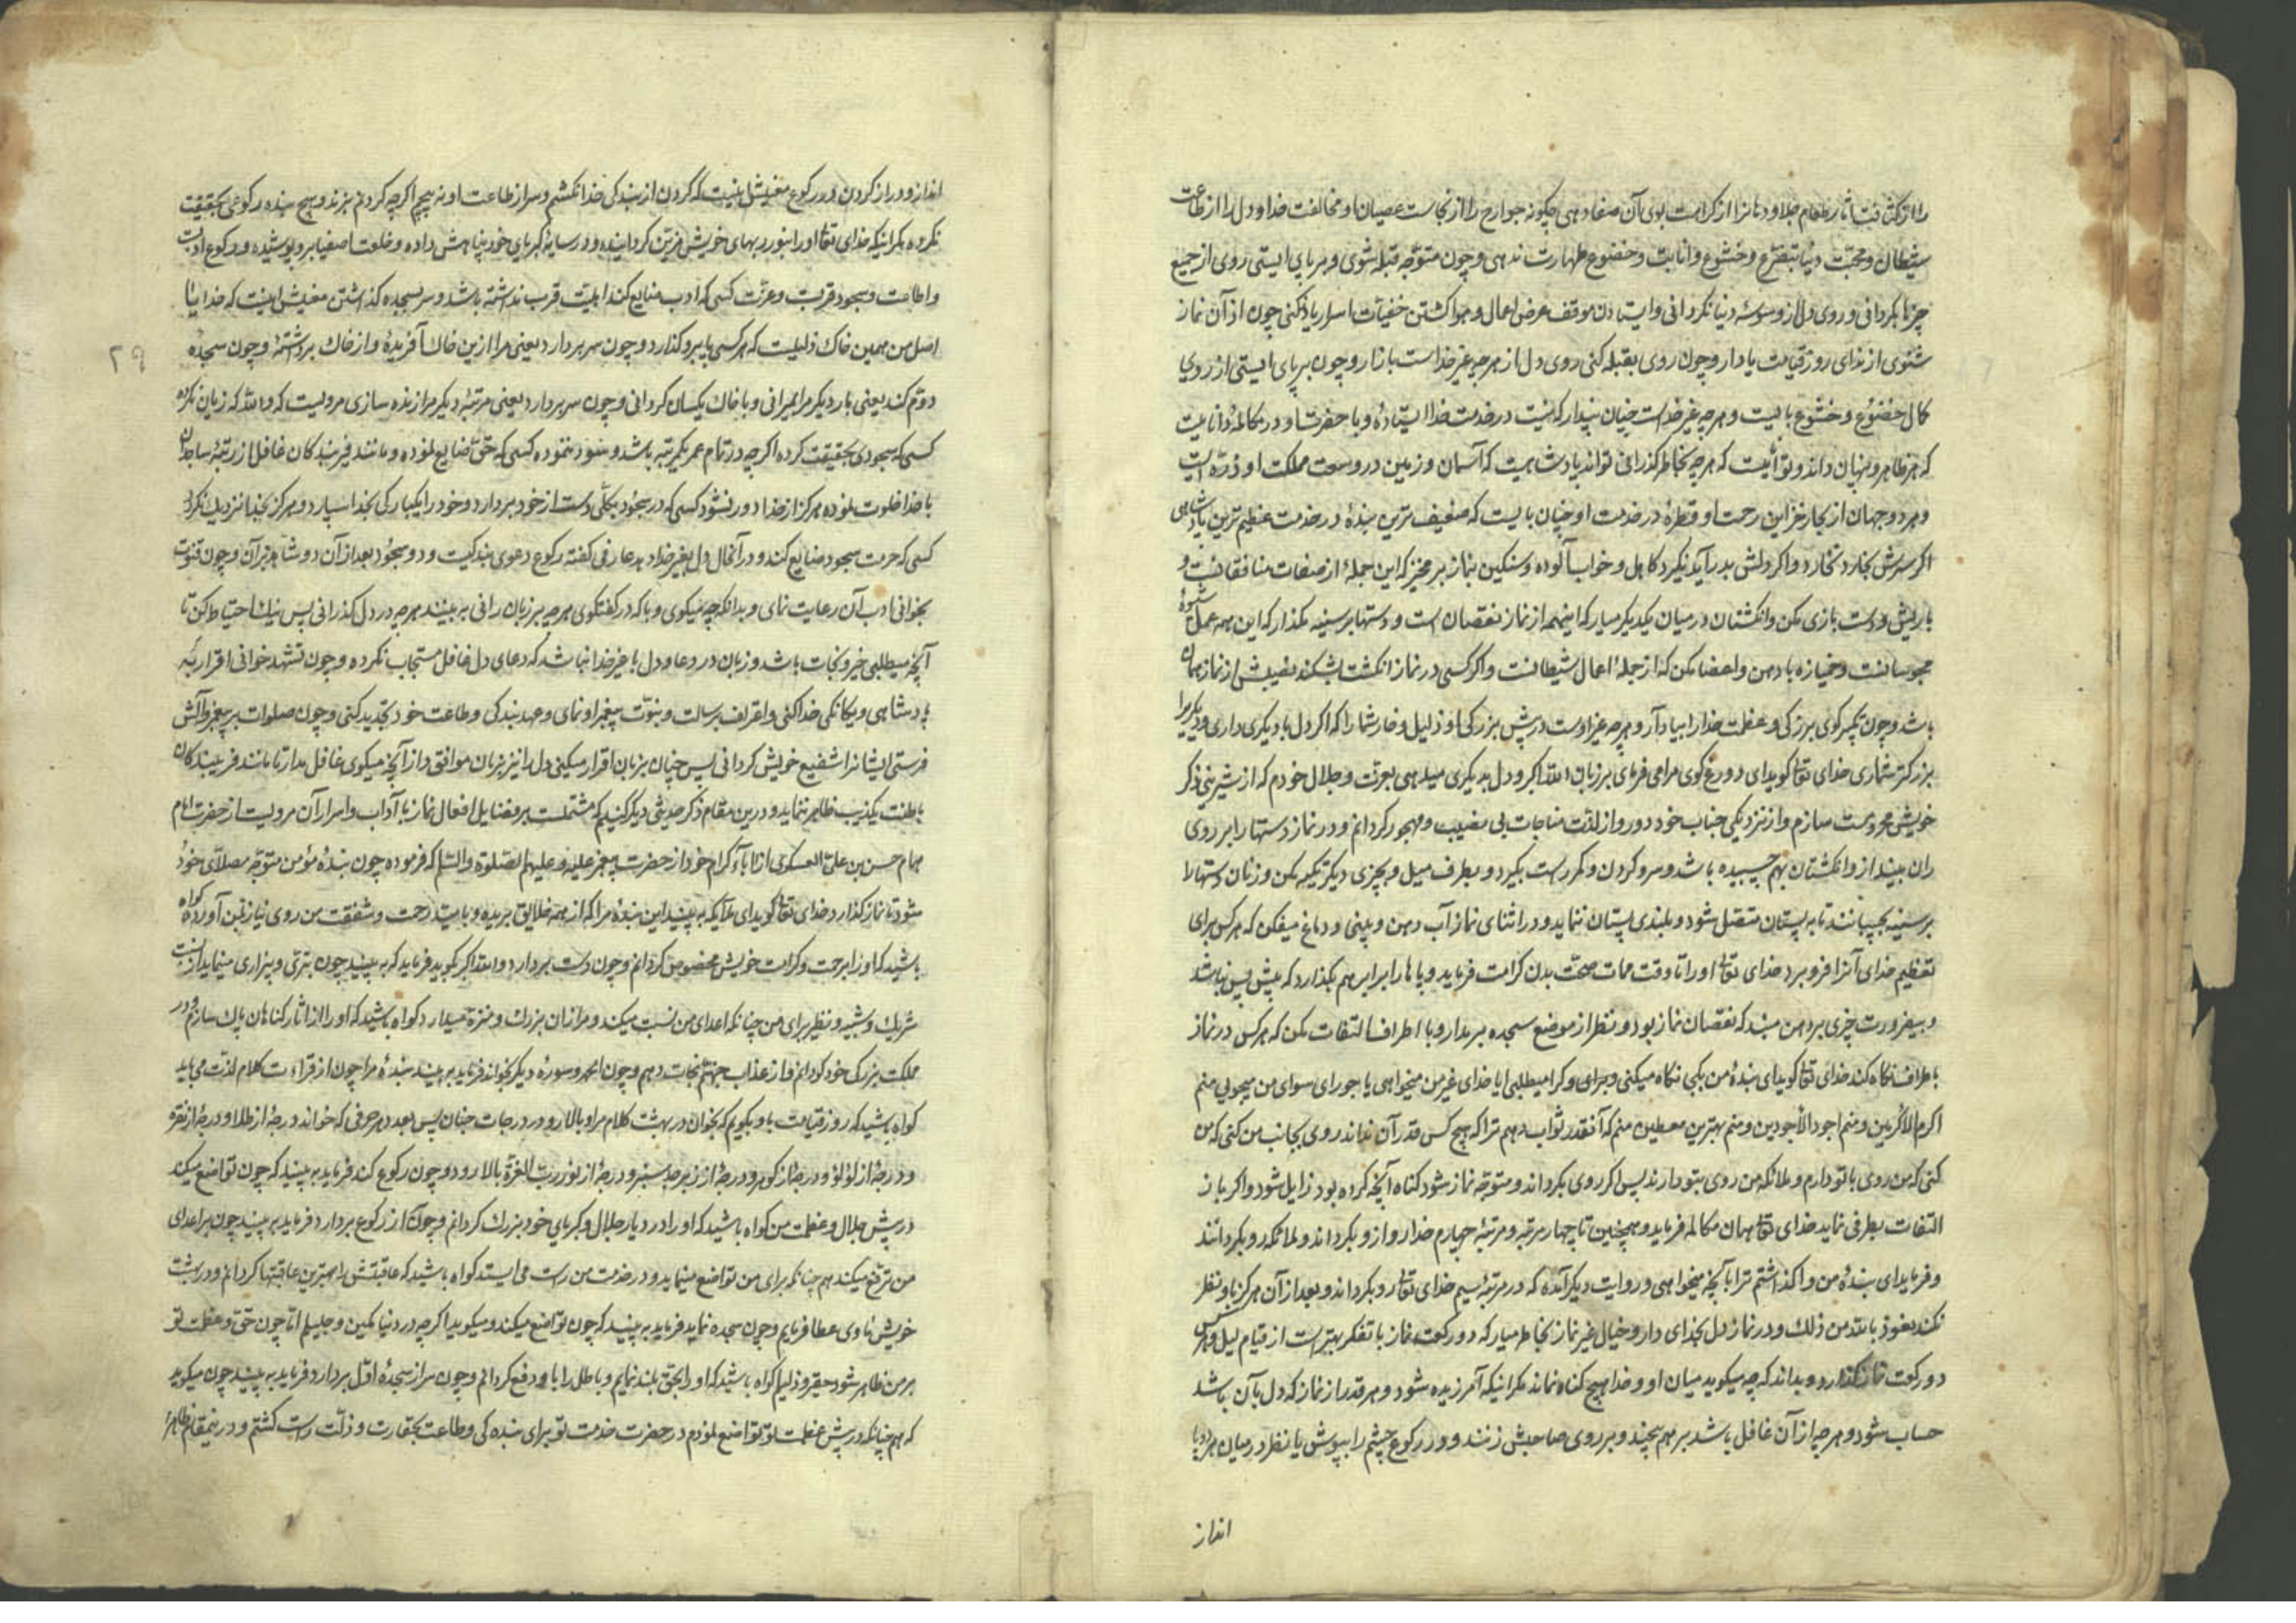 را از کثافت آثار طعام جلا و دهانرا از کرامت بوی آن صفا دهی چگونه جوارح را از نجاست عصیان او مخالفت خدا و دل را از طاعت
شیطان و محبّت دنیا بتضرّع و خشوع و انابت و خضوع طهارت ندهی و چون متوجّه قبله شوی و بر پای ایستی روی از جمیع
چیزها بگردانی و روی دل از وسوسهٔ دنیا نگردانی و ایستادن موقف عرض اعمال و هوا گشتن خفیّات اسرار یاد نکنی چون از آن نماز
شنوی از ندای روز قیامت یاد آر و چون روی بقبله کنی روی دل از هر چه غیر خداست باز آر و چون بر پای ایستی از روی
کمال خضوع و خشوع بایست و هر چه غیر خداست چنان پندار که نیست در خدمت خدا ایستادهٔ و با حضرت او در مکالمهٔ دانائیست
که هر ظاهر و پنهان داند و توانائیست که هر چه بخاطر گذرانی تواند پادشاهیست که آسمان و زمین در وسعت مملکت او ذرّه ایست
و هر دو جهان از بحار خزاین رحمت او قطرهٔ در خدمت او چنان بایست که ضعیف ترین بندهٔ در خدمت عظیم ترین پادشاهی
اگر سرش بخارد نخارد و اگر دلش بدرد آید نگیرد کاهل و خواب آلوده و سنگین بنماز بر مخیز که این جملهٔ از صفات منافقانست و
با ریش و دست بازی مکن و انگشتان در میان یکدیگر میار که اینهمه از نماز نقصان است و دستها بر سینه مگذار که این همه عمل شیوهٔ
مجوسانست و خمیازه با دهن و اعضا مکن که از جملهٔ اعمال شیطانست و اگر کسی در نماز انگشت بشکند نصیبش از نماز همان
باشد و چون تکبیر گوی بزرگی و عظمت خدا را بیاد آر و هر چه غیر اوست در پیش بزرگی او ذلیل و خار شمار که اگر دل با دیگری داری و دیگر را
بزرگتر شماری خدای تعالی گوید ای دروغ گوی مرا می فریبی بر زبان الله اکبر و دل بدیگری میدهی بعزّت و جلال خودم که از شیرینی ذکر
خویش محرومت سازم و از نزدیکی جناب خود دور و از لذّت مناجات بی نصیب و مهجور گردانم و در نماز دستها را بر روی
ران بینداز و انگشتان بهم چسبیده باشد و سر و گردن و کمر راست بگیر و بطرف میل و بچیزی دیگر تکیه مکن و زنان دستها را
بر سینه بچسبانند تا به پستان متصل شود و بلندی پستان ننماید و در اثنای نماز آب دهن و بینی و دماغ میفکن که هر کس برای
تعظیم خدای آنرا فرو برد خدای تعالی او را تا وقت ممات صحّت بدن کرامت فرماید و پاها را برابر هم بگذار که پیش پس نباشد
و بیضرورت چیزی بر دهن مبند که نقصان نماز بود و نظر از موضع سجده بر مدار و با اطراف التفات مکن که هر کس در نماز
با طراف نگاه کند خدای تعالی گوید ای بندهٔ من بکی نگاه میکنی و برای و کرا میطلبی ایا خدای غیر من میخواهی یا جورای سوای من میجویی منم
اکرم الاکرمین و منم اجود الاجودین و منم بهترین معطین منم که آنقدر ثواب دهم ترا که هیچ کس قدر آن نداند روی بجانب من کنی که من
کنی که من روی با تو دارم و ملائکه من روی بتو دارند پس اگر روی بگرداند و متوجّه نماز شود گناه آنچه کرده بود زایل شود و اگر باز
التفات بطرفی نماید خدای تعالی همان مکالمه فرماید و همچنین تا چهار مرتبه و مرتبهٔ چهارم خدا رو از و بگرداند و ملائکه رو بگردانند
و فرماید ای بندهٔ من واگذاشتم ترا با آنچه میخواهی و روایت دیگر آمده که در مرتبهٔ سیم خدای تعالی رو بگرداند و بعد از آن هرگز باو نظر
نکند نعوذ بالله من ذلک و در نماز دل بخدای دار و خیال غیر نماز بخاطر میار که دو رکعت نماز با تفکر بهتر است از قیام لیل و هر کس
دو رکعت نماز گذارد و بداند که چه میگوید میان او و خدا هیچ گناه نماند مگر اینکه آمرزیده شود و هر قدر از نماز که دل با آن باشد
حساب شود و هر چه از آن غافل باشد بر هم پیچند و بر روی صاحبش زنند و در رکوع چشم را بپوش یا نظر در میان هر دو پا
انداز
انداز و دراز کردن در رکوع معنیش اینست که گردن از بندگی خدا نکشم و سر از طاعت او نه پیچم اگر چه گردنم بزنند و هیچ بنده رکوعی بحقیقت
نکرده مگر اینکه خدای تعالی او را بنور بهای خویش مزیّن گردانیده و در سایهٔ کبریای خود پناهش داده و خلعت اصفیا بر و پوشیده و رکوع ادبست
و اطاعت و سجود قربت و عزّت کسی که ادب ضایع کند اهلیّت قرب نداشته باشد و سر بسجده گذاشتن معنیش اینست که خدایا
اصل من همین خاک ذلیلیست که هر کسی پا برو گذارد و چون سر بردارد یعنی مرا ازین خاک آفریدهٔ و از خاک برداشتهٔ و چون سجدهٔ
۲۹
دوّم کند یعنی بار دیگر مرا بمیرانی و با خاک یکسان گردانی و چون سر بردارد یعنی مرتبهٔ دیگر مرا زنده سازی مرویست که والله که زیان نکرده
کسی که سجودی بحقیقت کرده اگر چه در تمام عمر یکمرتبه باشد و سود ننموده کسی که حق ضایع نموده و مانند فریبندگان غافل از رتبهٔ ساجدان
با خدا خلوت نموده هرگز از خدا دور نشود کسی که در سجود بکلّی دست از خود بردارد و خود را یکبارگی بخدا سپارد و هرگز بخدا نزدیک نگردد
کسی که حرمت سجود ضایع کند و در آنحال دل بغیر خدا دهد عارفی گفته رکوع دعوی بندگیست و دو سجود بعد از آن دو شاهد بر آن و چون قنوت
بخوانی ادب آن رعایت نمای و بدانکه چه میگوی و با که در گفتگوی هر چه بر زبان رانی به بینند هر چه در دل گذرانی پس نیک احتیاط کن تا
آنچه میطلبی خیر و نجات باشد و زبان در دعا و دل با غیر خدا نباشد که دعای دل غافل مستجاب نگردد و چون تشهد خوانی اقرار به
پادشاهی و یگانگی خدا کنی و اعتراف برسالت و نبوّت پیغمبر او نمای و عهد بندگی و طاعت خود تجدید کنی و چون صلوات بر پیغمبر و آلش
فرستی ایشانرا شفیع خویش گردانی پس چنان بزبان اقرار میکنی دل را نیز بزبان موافق و از آنچه میگوی غافل مدار تا مانند فریبندگان
باطنت تکذیب ظاهر ننماید و درین مقام ذکر حدیثی دیگر کنیم که مشتملست بر فضایل افعال نماز با آداب و اسرار آن مرویست از حضرت امام
همام حسن بن علی العسکری از اباء کرام خود از حضرت پیغمبر علیه و علیهم الصّلوة و السّلام که فرموده چون بندهٔ مؤمن متوجّه مصلّای خود
شود تا نماز گذارد خدای تعالی گوید ای ملائکه به بینید این بندهٔ مرا که از همه خلایق بریده و بامید رحمت و شفقت من روی نیاز بمن آورده گواه
باشید که او را برحمت و کرامت خویش مخصوص گردانم و چون دست بردارد و الله اکبر بگوید فرماید که به بینید چون تبرّی و بیزاری مینماید از نسبت
شریک و شبیه و نظیر برای من چنانکه اعدای من نسبت میکند و مرا از آن بزرگ و منزه میدارد گواه باشید که او را از آثار گناهان پاک سازم و در
مملکت بزرگ خود گردانم و از عذاب جهنّم نجات دهم و چون الحمد و سورهٔ دیگر بخواند فرماید به بینید بندهٔ مرا چون از قراءت کلام لذّت می یابد
گواه باشید که روز قیامت باو بگویم که بخوان در بهشت کلام مرا و بالا رو در درجات جنان پس بعدد هر حرفی که خواند درجهٔ از طلا و درجهٔ از نقره
و درجهٔ از لؤلؤ و درجهٔ از گوهر و درجهٔ از زبرجد سبز و درجهٔ از نور ربّ العزّة بالا رود و چون رکوع کند فرماید به بینید که چون تواضع میکند
در پیش جلال و عظمت من گواه باشید که او را در دیار جلال و کبریای خود بزرگ گردانم و چون از رکوع بردارد فرماید به بینید چون بر اعدای
من ترفّع میکند هم چنانکه برای من تواضع مینماید و در خدمت من راست می ایستد گواه باشید که عاقبتش را بهترین عاقبتها گردانم و در بهشت
خویش ماوی عطا فرمایم و چون سجده نماید فرماید به بینید که چون تواضع میکند و میگوید اگر چه در دنیا مکین و جلیلم امّا چون حقّ و عظمت تو
بر من ظاهر شود حقیر و ذلیلم گواه باشید که او را بحق بلند نمایم و باطل را باو دفع گردانم و چون سر از سجدهٔ اوّل بردارد فرماید به بینید چون میگوید
که هم چنانکه در پیش عظمت تو تواضع نمودم در حضرت خدمت تو برای بنده گی و طاعت بحقارت و ذلّت راست گشتم و درینمقام ظاهر